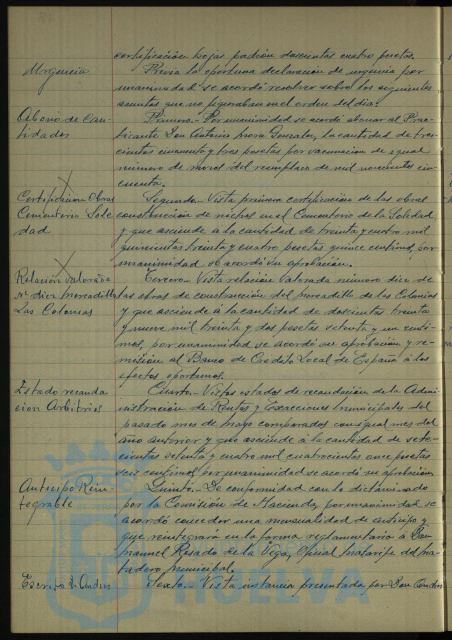 certificación hojas padrón doscientas cuatro pesetas.
Urgencia
Previa la oportuna declaración de urgencia por
unanimidad se acordó resolver sobre los siguientes
asuntos que no figuraban en el orden del día:
Abono de Can-
tidades
Primero.- Por unanimidad se acordó abonar al Prac-
ticante Don Antonio Mora González, la cantidad de tres-
cientas cincuenta y tres pesetas por vacunación de igual
número de mozos del reemplazo de mil novecientos cin-
cuenta.
Certificación Obras
Cementerio Sole
dad
Segundo.- Vista primera certificación de las obras
construcción de nichos en el Cementerio de la Soledad
y que asciende a la cantidad de treinta y cuatro mil
quinientas treinta y cuatro pesetas quince céntimos, por
unanimidad se acordó su aprobación.
Relación valorada
nº diez mercadillo
Las Colonias
Tercero.- Vista relación valorada número diez de
las obras de construcción del mercadillo de las Colonias
y que asciende a la cantidad de doscientas treinta
y nueve mil treinta y dos pesetas setenta y un cénti-
mos, por unanimidad se acordó su aprobación y re-
misión al Banco de Crédito Local de España a los
efectos oportunos.
Estado recauda
ción Arbitrios
Cuarto.- Vistos estados de recaudación de la Admi-
nistración de Rentas y Exacciones Municipales del
pasado mes de mayo comparados con igual mes del
año anterior y que asciende a la cantidad de sete-
cientas setenta y cuatro mil cuatrocientas once pesetas
seis céntimos, por unanimidad se acordó su aprobación.
Anticipo Rein-
tegrable
Quinto.- De conformidad con lo dictaminado
por la Comisión de Hacienda, por unanimidad se
acordó conceder una mensualidad de anticipo y
que reintegrará en la forma reglamentaria a Don
Manuel Rosado de la Vega, Oficial Matarife del Ma-
tadero Municipal.
Escrito D. Andrés
Sexto.- Vista instancia presentada por Don Andrés
HUELVA